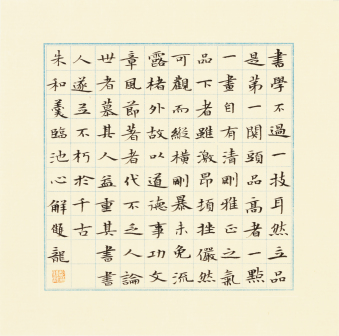 書學不過一技耳然立品
是第一關頭品高者一點
一畫自有清剛雅正之氣
品下者雖激昂頓挫儼然
可觀而縱橫剛暴未免流
露楮外故以道德事功文
章風節著者代不乏人論
世者慕其人益重其書書
人遂並不朽於千古
朱和羹臨池心解雙龍